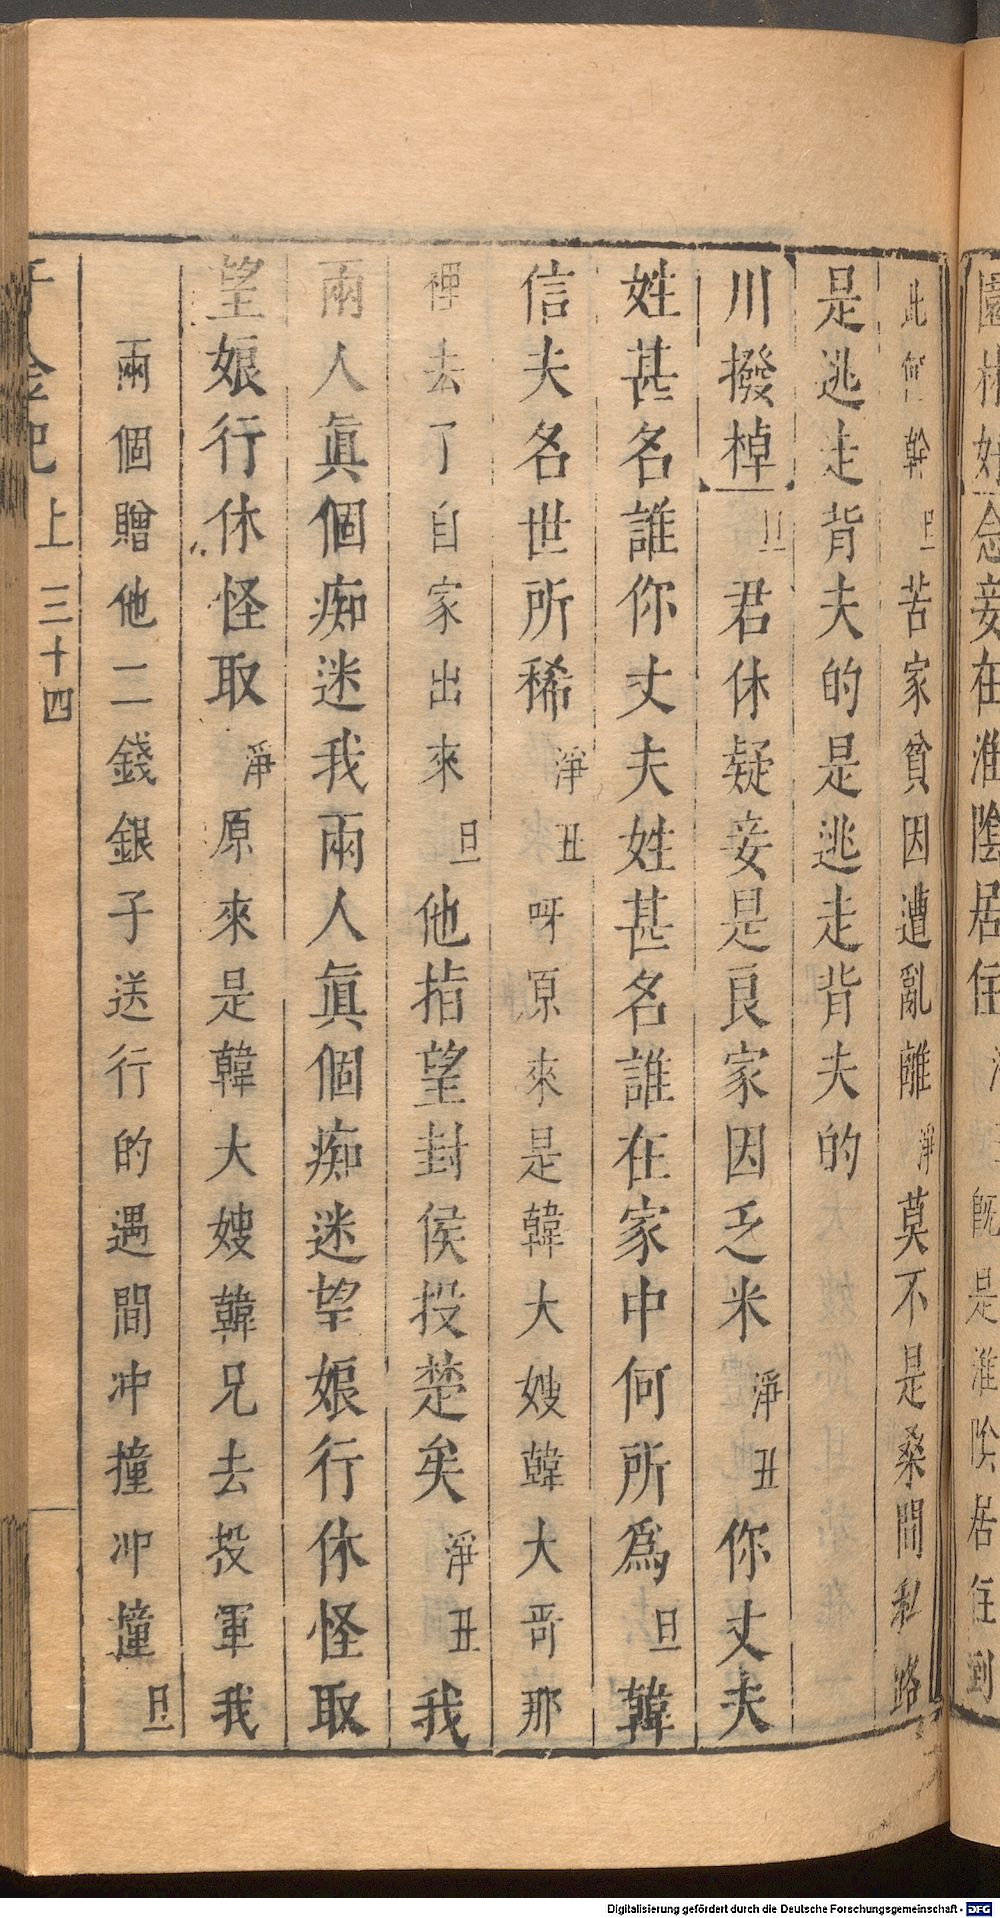 園林好念妾在淮陰居住
既是淮陰居住到
此何幹旦苦家貧因遭亂離淨莫不是桑間私路
是逃走背夫的是逃走背夫的
川撥棹旦君休疑妾是良家因乏米淨丑你丈夫
姓甚名誰你丈夫姓甚名誰在家中何所爲旦韓
信夫名世所稀淨丑呀原來是韓大嫂韓大哥那
裡去了自家出來旦他指望封侯投楚矣淨丑我
兩人眞個痴迷我兩人眞個痴迷望娘行休怪取
望娘行休怪取淨原來是韓大嫂韓兄去投軍我
兩個贈他二錢銀子送行的遇間冲撞冲撞旦
千金記 上 三十四
Digitalisierung gefördert durch die Deutsche Forschungsgemeinschaft - DFG